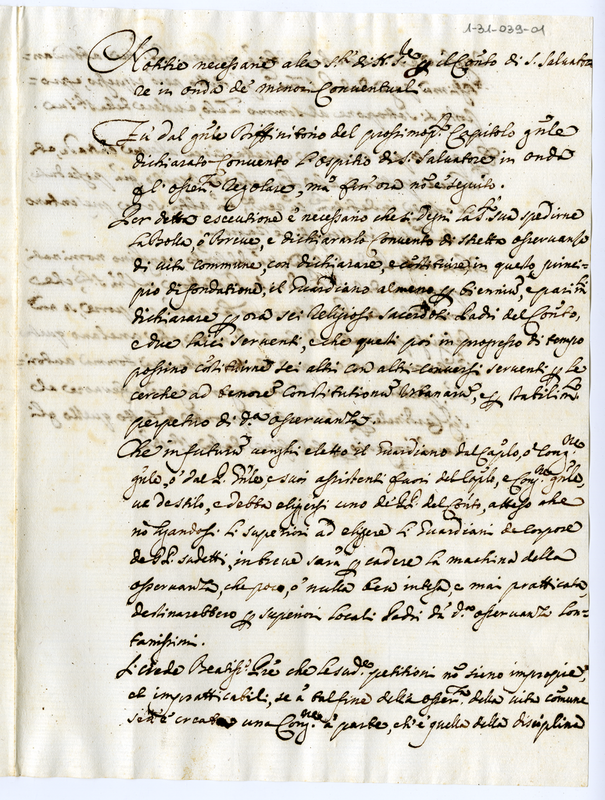 1-31-039-01
Notitie necessarie alla S.tà di N. S.re p il Con.to di S. Salvato-
re in onda de minori Conventuali
Fù dal g'nle Diffinitorio del prossimo Capitolo g'nle
dichiarato Convento l'Ospitio di S. Salvatore in onda
p l'osser.za Regolare, mà fin'ora nō è seguito.
Per detta esecutione è necessario che si degni la S.tà sua spedirne
la Bolla, ò Breve, e dichiararlo Convento di stretta osservanza
di vita commune, con dichiarare, e constituire in questo princi-
pio di fondatione, il Guardiano almeno p biennium, e parim.ti
dichiarare p ora sei Religiosi Sacerdoti Padri del Con.to,
e due laici serventi, e che questi poi in progresso di tempo
possino costituirne sei altri con altri conversi serventi p le
cerche ad tenorē Constitutionū Urbanarū, e p stabilim.to
perpetuo di d.a osservanza.
Che in futurū venghi eletto il Guardiano dal Cap.lo, ò Cong.ne
g'nle, ò dal P. G'nle e suoi assistenti fuori del Cap.lo, e Cong.ne g'nle,
ut de stilo, e debba eligersi uno di PP. del Con.to, atteso che
nō li superiori ad eligere li Guardiani de corpore
de PP. sudetti, in breve sarà p cadere la machina della
osservanza, che poco, ò nulla ben intesa, e mai pratticata,
destinarebbero p superiori locali Padri da d.a osservanza lon-
tanissimi.
Si crede Beatiss.o P're che le sud.e petitioni nō sieno improprie,
et impratticabili, se à tal fine della osser.za della vita comune
si è creata una Cong.ne à parte, ch'è quella della disciplina